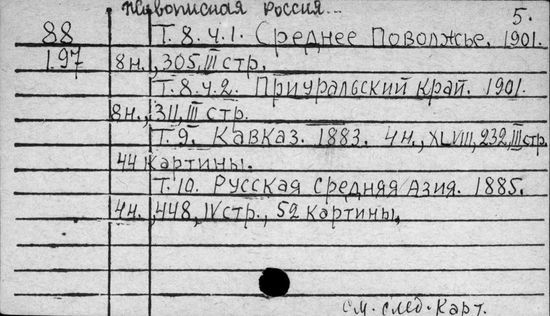 Живописная Россия...
5.
88 Т. 8. ч. 1. Среднее Поволжье. 1901.
197 8н., 305, III стр.
Т. 8. ч. 2. Приуральский край. 1901.
8н., 311, III стр.
Т. 9. Кавказ. 1883. 4н., XLVIII, 232, III стр.
44 картины.
Т. 10. Русская Средняя Азия. 1885.
4н., 448, IV стр., 52 картины.
см. след. карт.